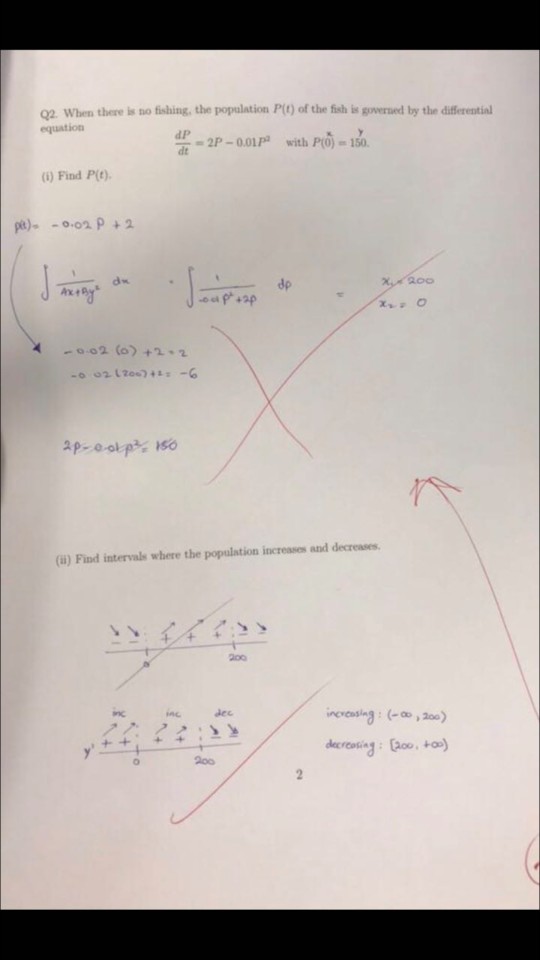 Q2. When there is no fishing, the population P(t) of the fish is governed by the differential
equation
x y
dP/dt = 2P − 0.01P² with P(0) = 150.
(i) Find P(t).
P(t) = -0.02 P + 2
∫ 1/(Ax+By²) dx = ∫ 1/(-0.01 P²+2P) dp = x₁ = 200
x₂ = 0
-0.02 (0) +2 = 2
-0.02 (200) +2 = -6
2P - 0.01 P² = 150
(ii) Find intervals where the population increases and decreases.
- - + + + - -
0 200
inc inc dec
increasing : (-∞, 200)
y' + + + + - -
decreasing : [200, +∞)
0 200
2